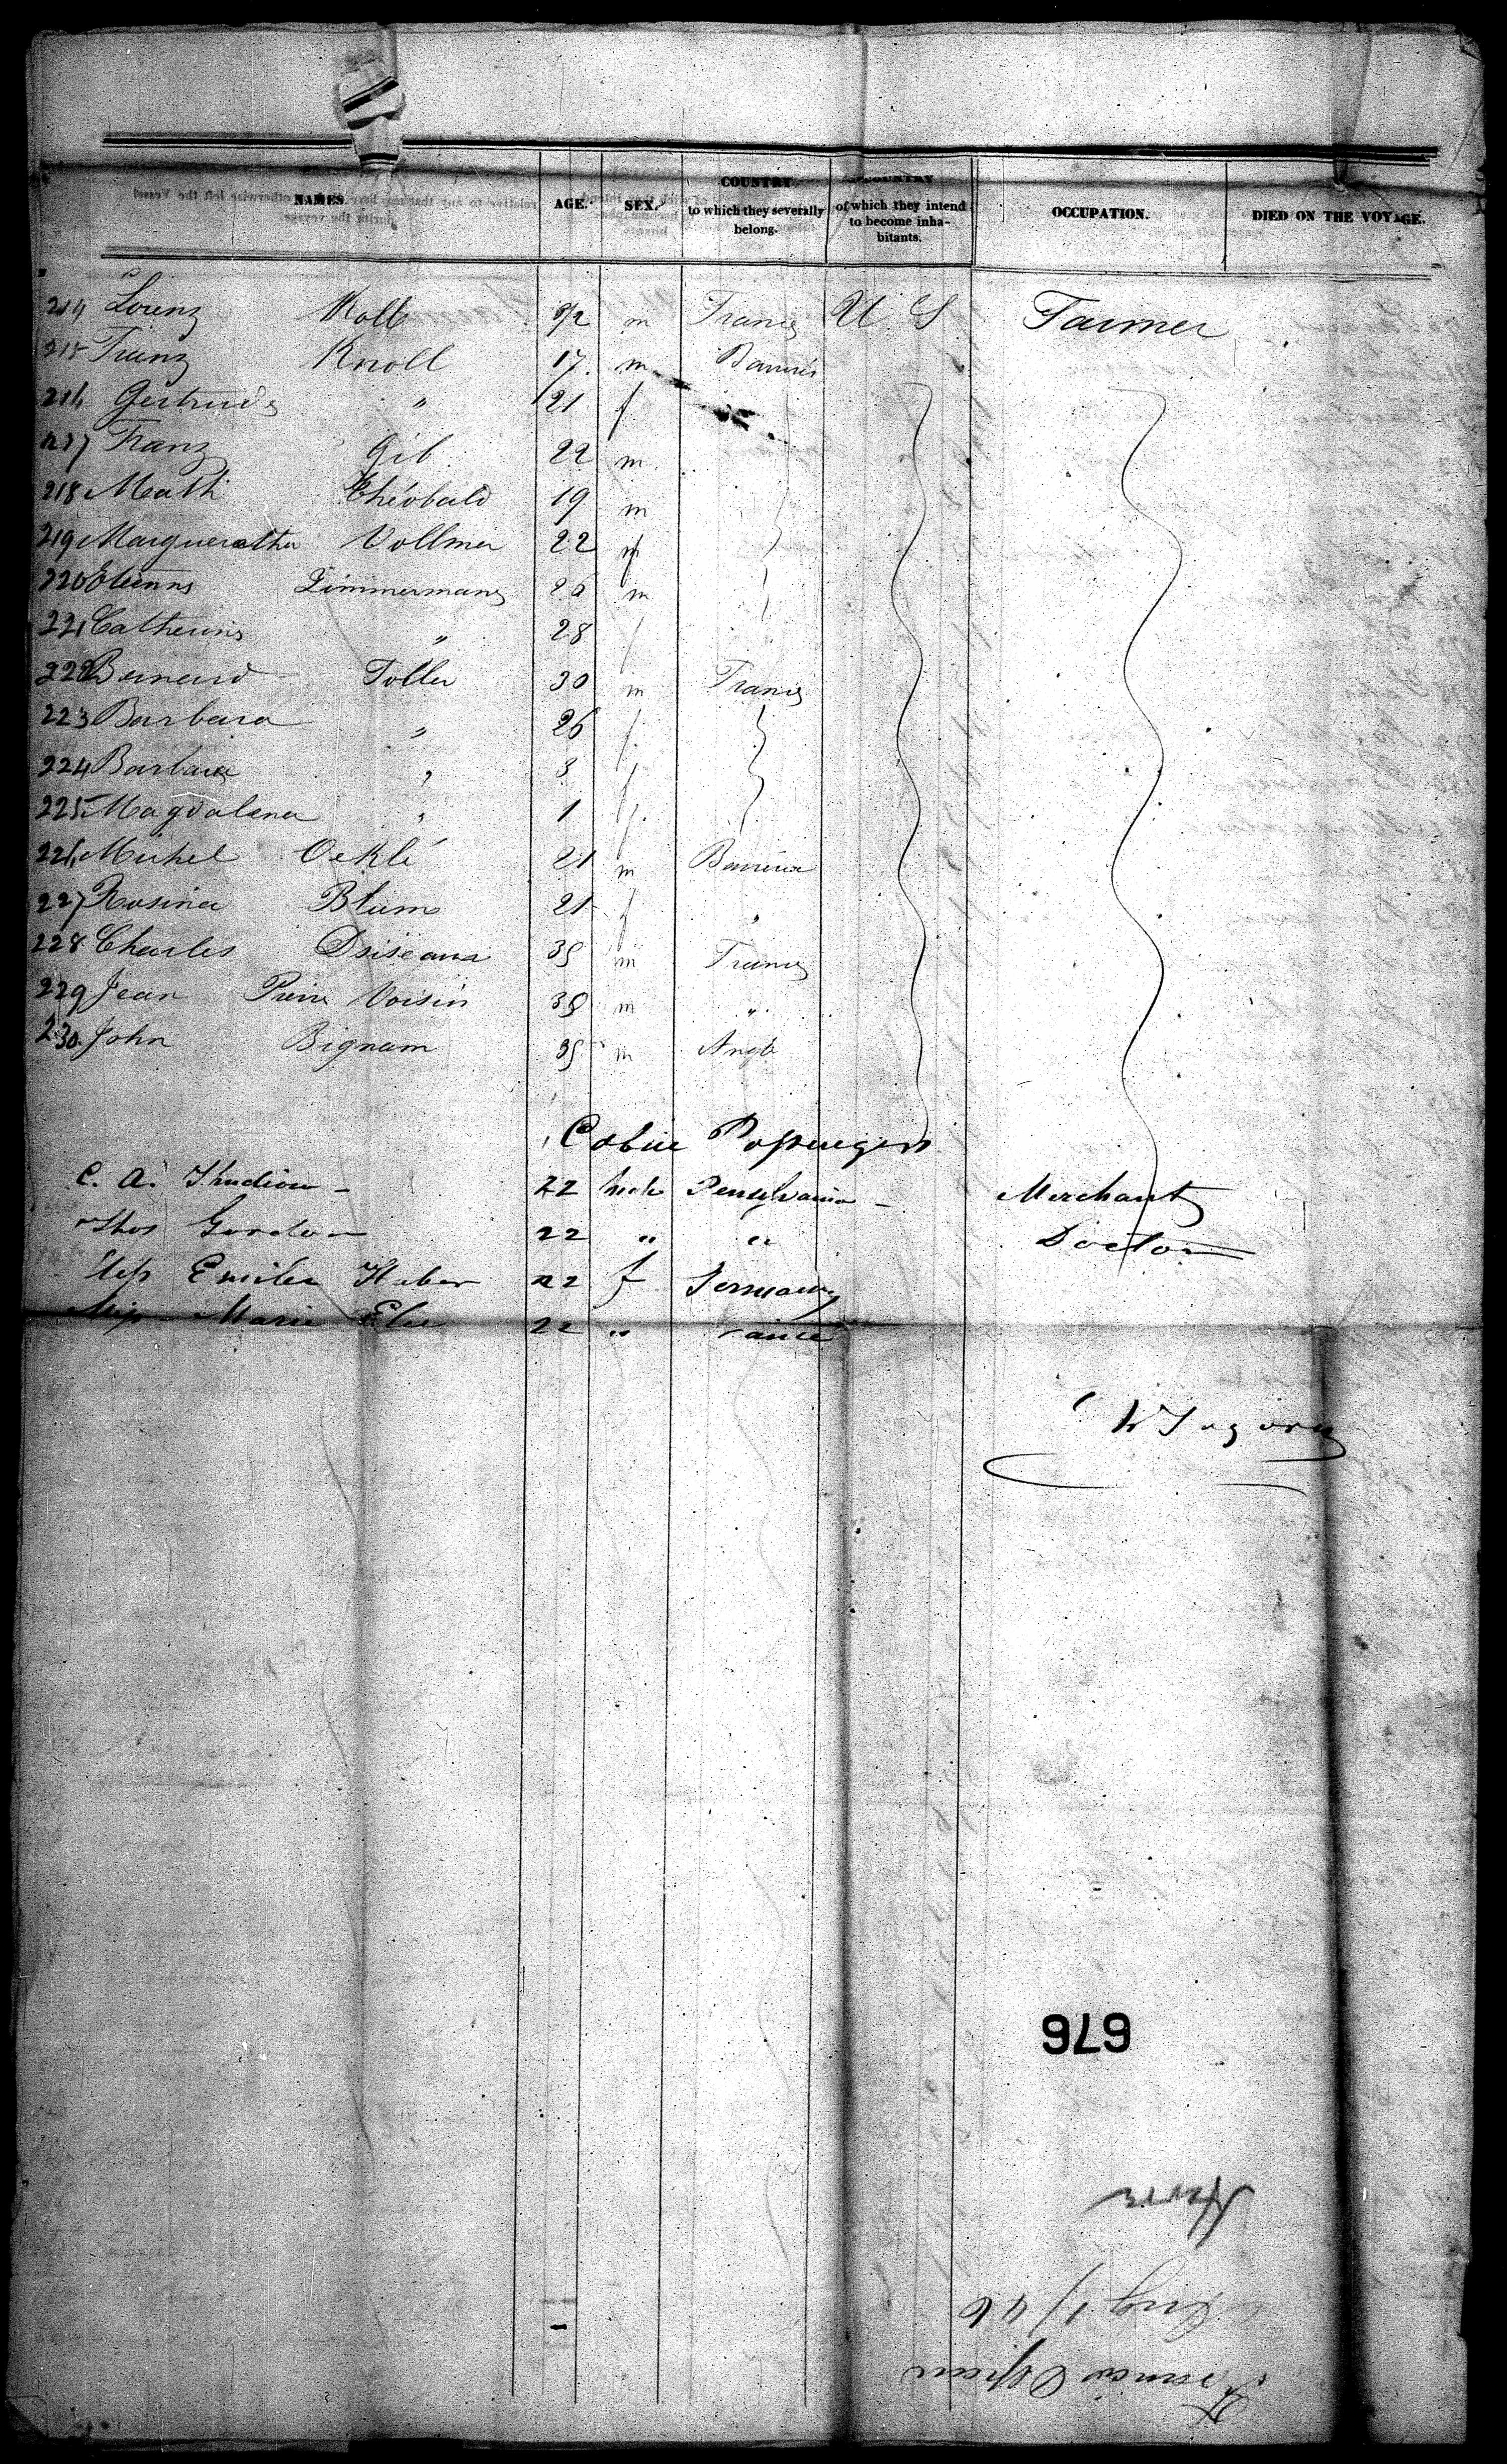 NAMES. AGE. SEX. COUNTRY to which they severally belong. COUNTRY of which they intend to become inhabitants. OCCUPATION. DIED ON THE VOYAGE.
214 Lorenz Kolb m France U S Farmer
215 Franz Knoll 17 m
216 Gertrude " 21 f
217 Franz Gib 22 m
218 Math Théobald 19 m
219 Margueratha Vollmer 22 f
220 Etienne Zimmermann 26 m
221 Catherine " 28 f
222 Bernard Toller 30 m France
223 Barbara " 26 f
224 Barbara " 3 f
225 Magdalena " 1 f
226 Michel Oeklé 21 m Baviera
227 Rosina Blum 21 f "
228 Charles 35 m France
229 Jean Pierre Voisin 35 m "
230 John Bignam 35 m Angle
Cabin Passengers
C. A. 22 male Pensylvania Merchant
Thos Gordon 22 " " Doctor
Miss Emilie Huber 22 f Germany
Miss Marie Elie 22 " France
676
Havre
Aug 1/46